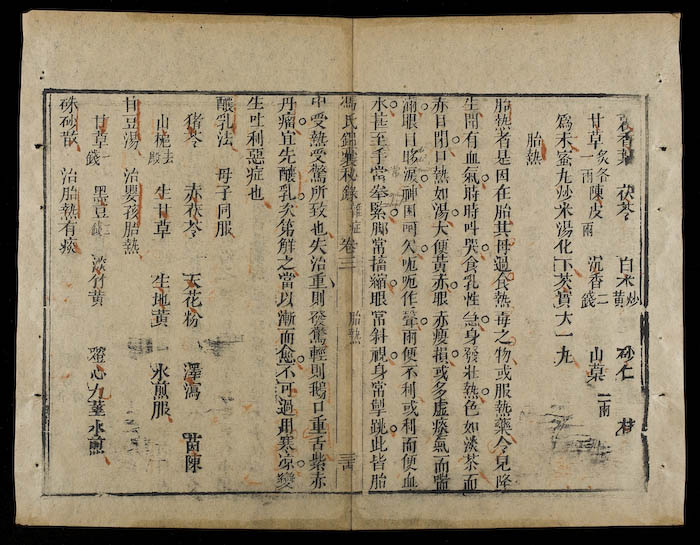 藿香葉 茯苓 白朮炒黃 砂仁
甘草炙各一兩 陳皮兩 沉香二錢 山藥一兩
為末蜜丸炒米湯化下芡實大一丸
胎熱
胎熱者是因在胎其母過食熱毒之物或服熱藥令兒降
生間有血氣時時叫哭食乳性急身發壯熱色如淡茶面
赤目閉口熱如湯大便黃赤眼赤瘦損或多虛痰氣而喘
滿眼目眵淚神困呵欠呃呃作聲兩便不利或利而便血
水甚至手常拳緊腳常搐縮眼常斜視身常掣跳此皆胎
馮氏錦囊秘錄 雜症 卷三 胎熱
中受熱受驚所致也失治重則發驚輕則鵝口重舌紫赤
丹痛宜先釀乳次第解之當以漸而愈不可過用寒涼變
生吐利惡症也
釀乳法 母子同服
猪苓 赤茯苓 天花粉 澤瀉 茵陳
山梔 生甘草 生地黃 水煎服
甘豆湯 治嬰孩胎熱
甘草錢 黑豆錢 淡竹黃 燈心九莖水煎
硃砂散 治胎熱有痰